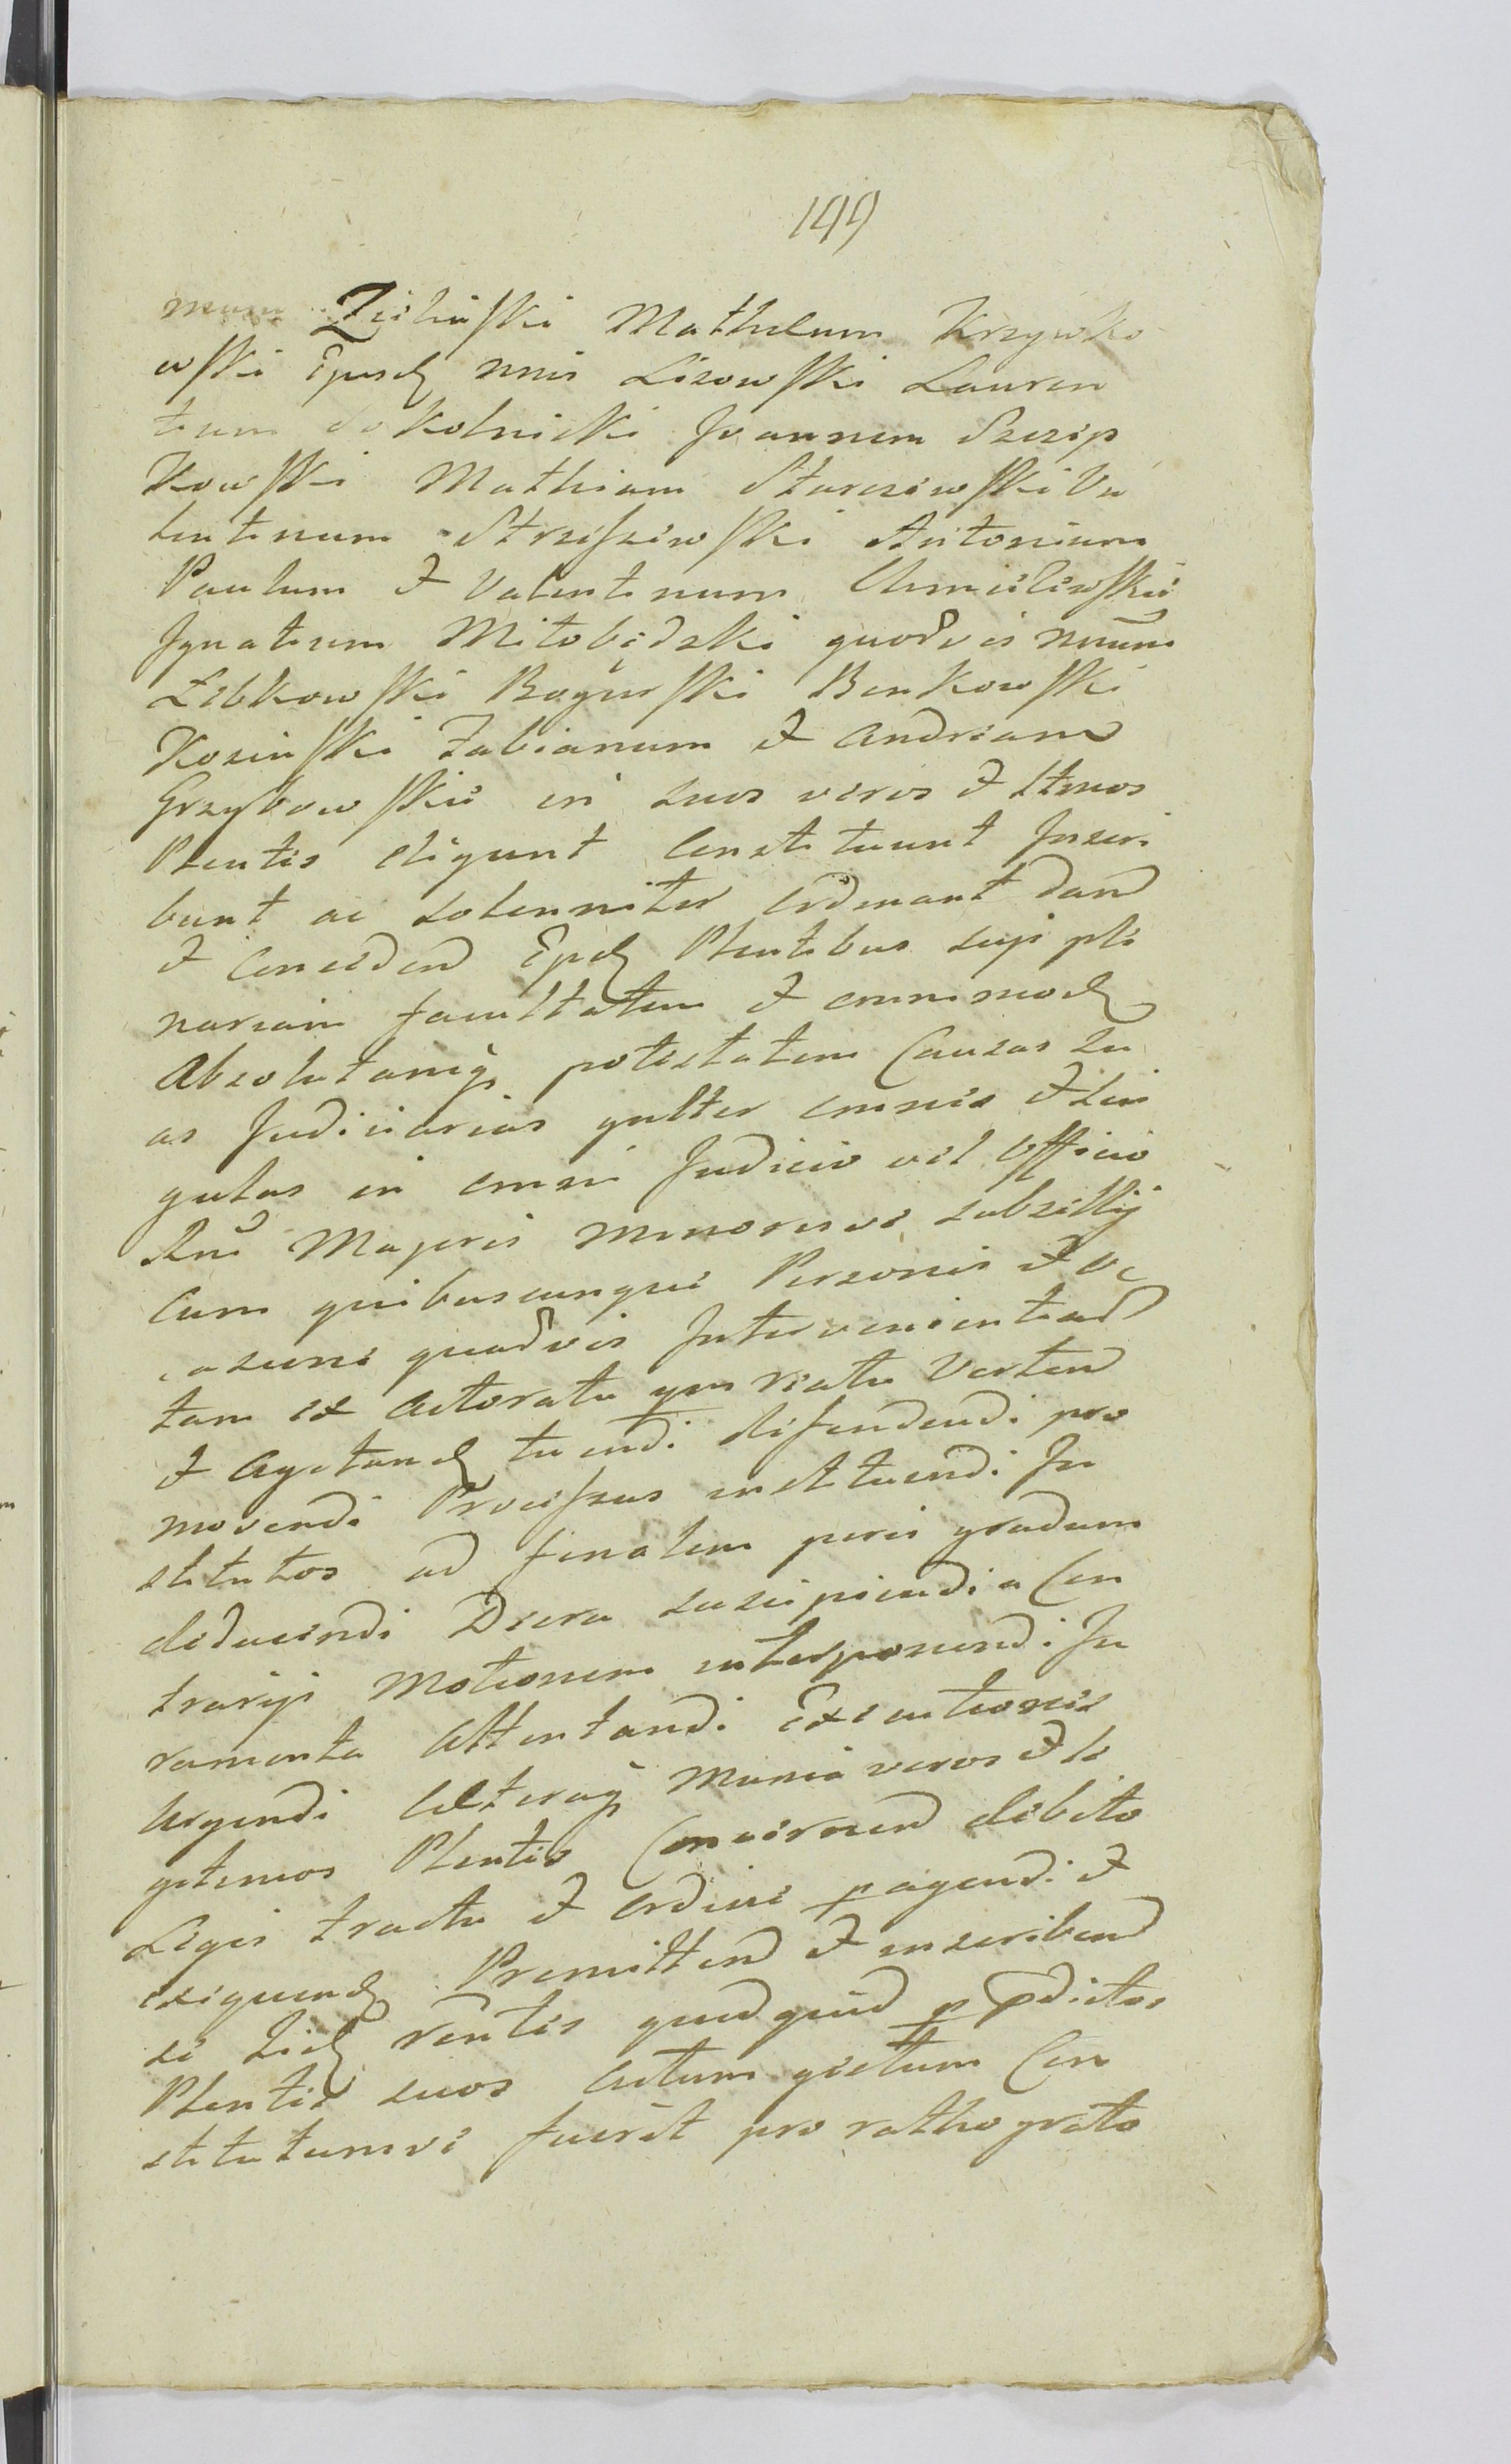 199
mum Zieliński Matheum Krzywko
wski Ejusd nnis Lisowski Lauren
tium Sokolnicki Joannem Szczip
kowski Mathiam Starczewski Va
lentinum Strzeszewski Antonium
Paulum et Valentinum Chmielewskie
Ignatium Miłobędzki quodvis nnum
Łebkowski Boguski Benkowski
Kosinski Fabianum et Andream
Grzybowskie in suos veros et ltmos
Plentes eligunt Constituunt Inscri
bunt ac solenniter ordinant dand
et Concedend Ejsd Plentibus suis ple
nariam facultatem et omnimod
Absolutamq potestatem Causas su
as Judiciarias gnlter omnes et sin
gulas in omni Judicio vel Officio
Rni Majoris minorisve subsellij
Cum quibuscunque Personis et oc
casione quadvis Intervenientiad
tam ex Actoratu qm reatu Verten
et Agitand tuendi defendendi pro
movendi Processus instituendi In
stitutos ad finalem juris gradum
deducendi Decreta suscipiendi a Con
trarijs Motionem interponendi Ju
ramenta Attentandi Executiones
Urgendi Cæteraq Munia veros et le
gitimos Plentes Concernend debito
Legis tractu et ordine pagendi et
exequend Promittend et inscribend
se iid rentes quidquid p pdictos
Plentes suos Actum gestum Con
stitutumve fuerit pro ratho grato